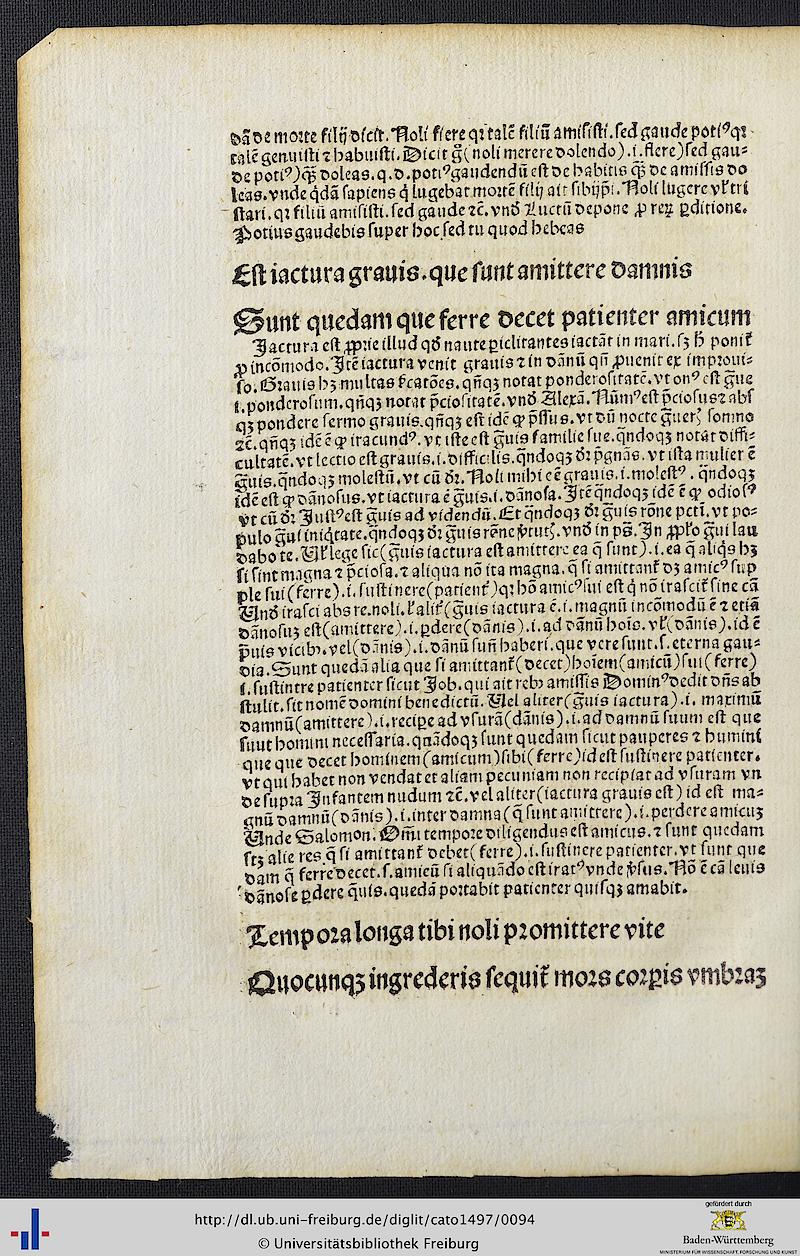 dā de morte filij dicit. Noli flere qꝛ talē filiū amisisti. sed gaude potiꝰ qꝛ
talē genuisti ⁊ habuisti. Dicit g̃ (noli merere dolendo) .i. flere) sed gau⸗
de potiꝰ) qꝫ̄ doleas. q. d. potiꝰ gaudendū est de habitis qꝫ̄ de amissis do
leas. vnde q̇dā sapiens q̇ lugebat mortē filij ait sibijp̄i. Noli lugere vl̕ tri
stari. qꝛ filiū amisisti. sed gaude ⁊c̄. vnd̕ Luctū depone ꝓ reꝝ ꝑditione.
Potius gaudebis super hoc sed tu quod hebeas
Est iactura grauis. que sunt amittere damnis
Sunt quedam que ferre decet patienter amicum
Iactura est ꝓprie illud qd̕ naute ꝑiclitantes iactāt in mari. sꝫ h̄ ponit̃
ꝓ incōmodo. Itē iactura venit grauis ⁊ in dānū qn̄ ꝓuenit ex improui⸗
so. Grauis hꝫ multas ſc̄atōes. qn̄qꝫ notat ponderositatē. vt onꝰ est g̃ue
i. ponderosum. qn̄qꝫ notat p̄ciositatē. vnd̕ Alexā. Nūmꝰ est p̄ciosus ⁊ abs
qꝫ pondere sermo grauis. qn̄qꝫ est idē ꝙ p̄ssus. vt dū nocte g̃uer̃ somno
⁊c̄. qn̄qꝫ idē ē ꝙ iracundꝰ. vt iste est g̃uis familie sue. qn̄doqꝫ notat diffi⸗
cultatē. vt lectio est grauis. i. difficilis. qn̄doqꝫ dr̄ p̄gnās. vt ista mulier ē
g̃uis. qn̄doqꝫ molestū. vt cū dr̄. Noli mihi eē grauis. i. molestꝰ. qn̄doqꝫ
idē est ꝙ dānosus. vt iactura ē g̃uis. i. dānosa. Itē qn̄doqꝫ idē ē ꝙ odiosꝰ
vt cū dr̄. Iustꝰ est g̃uis ad videndū. Et qn̄doqꝫ dr̄ g̃uis rōne pcti. vt po⸗
pulo g̃ui iniq̇tate. qn̄doqꝫ dr̄ g̃uis rōne v̕tut̃. vnd̕ in ps̄. In pp̄lo g̃ui lau
dabo te. Vl̕ lege sic (g̃uis iactura est amittere ea q̄ sunt) .i. ea q̄ aliq̇s hꝫ
si sint magna ⁊ p̄ciosa. ⁊ aliqua nō ita magna. q̄ si amittant̃ dꝫ amicꝰ sup
ple sui (ferre) .i. sustinere (patient̃) qꝛ hō amicꝰ sui est q̇ nō irascit̃ sine cā
Vnd̕ irasci abs re. noli. l̕ alit̃ (g̃uis iactura ē. i. magnū incōmodū ē ⁊ etiā
dānosuꝫ est (amittere) .i. ꝑdere (dānis) .i. ad dānū hoīs. vl̕ (dānis). id ē
p̄uis vicibꝫ. vel (dānis) .i. dānū sun̄ haberi. que vere sunt. s. eterna gau⸗
dia. Sunt quedā alia que si amittant̃ (decet) hoīem (amicū) sui (ferre)
i. sustintre patienter sicut Iob. qui ait rebꝫ amissis Dominꝰ dedit dn̄s ab
stulit. sit nomē domini benedictū. Vel aliter (g̃uis iactura) .i. maximū
damnū (amittere) .i. recipe ad vsurā (dānis) .i. ad damnū suum est que
suut homini necessaria. quādoqꝫ sunt quedam sicut pauperes ⁊ humini
que que decet hominem (amicum) sibi (ferre) id est sustinere patienter.
vt qui habet non vendat et aliam pecuniam non recipiat ad vsuram vn
de supra Infantem nudum ⁊c̄. vel aliter (iactura grauis est) id est ma⸗
gnū damnū (dānis) .i. inter damna (q̄ sunt amittere) .i. perdere amicuꝫ
Vnde Salomon. Om̄i tempore diligendus est amicus. ⁊ sunt quedam
stꝫ alie res q̄ si amittant̃ debet (ferre) .i. sustinere patienter. vt sunt que
dam q̄ ferre decet. s. amicū si aliquādo est iratꝰ vnde v̕sus. Nō ē cā leuis
dānose ꝑdere q̄uis. quedā portabit patienter quisqꝫ amabit.
Tempora longa tibi noli promittere vite
Quocunqꝫ ingrederis sequit̃ mors corꝑis vmbraꝫ
http://dl.ub.uni-freiburg.de/diglit/cato1497/0094
© Universitätsbibliothek Freiburg
gefördert durch
Baden-Württemberg
MINISTERIUM FÜR WISSENSCHAFT, FORSCHUNG UND KUNST